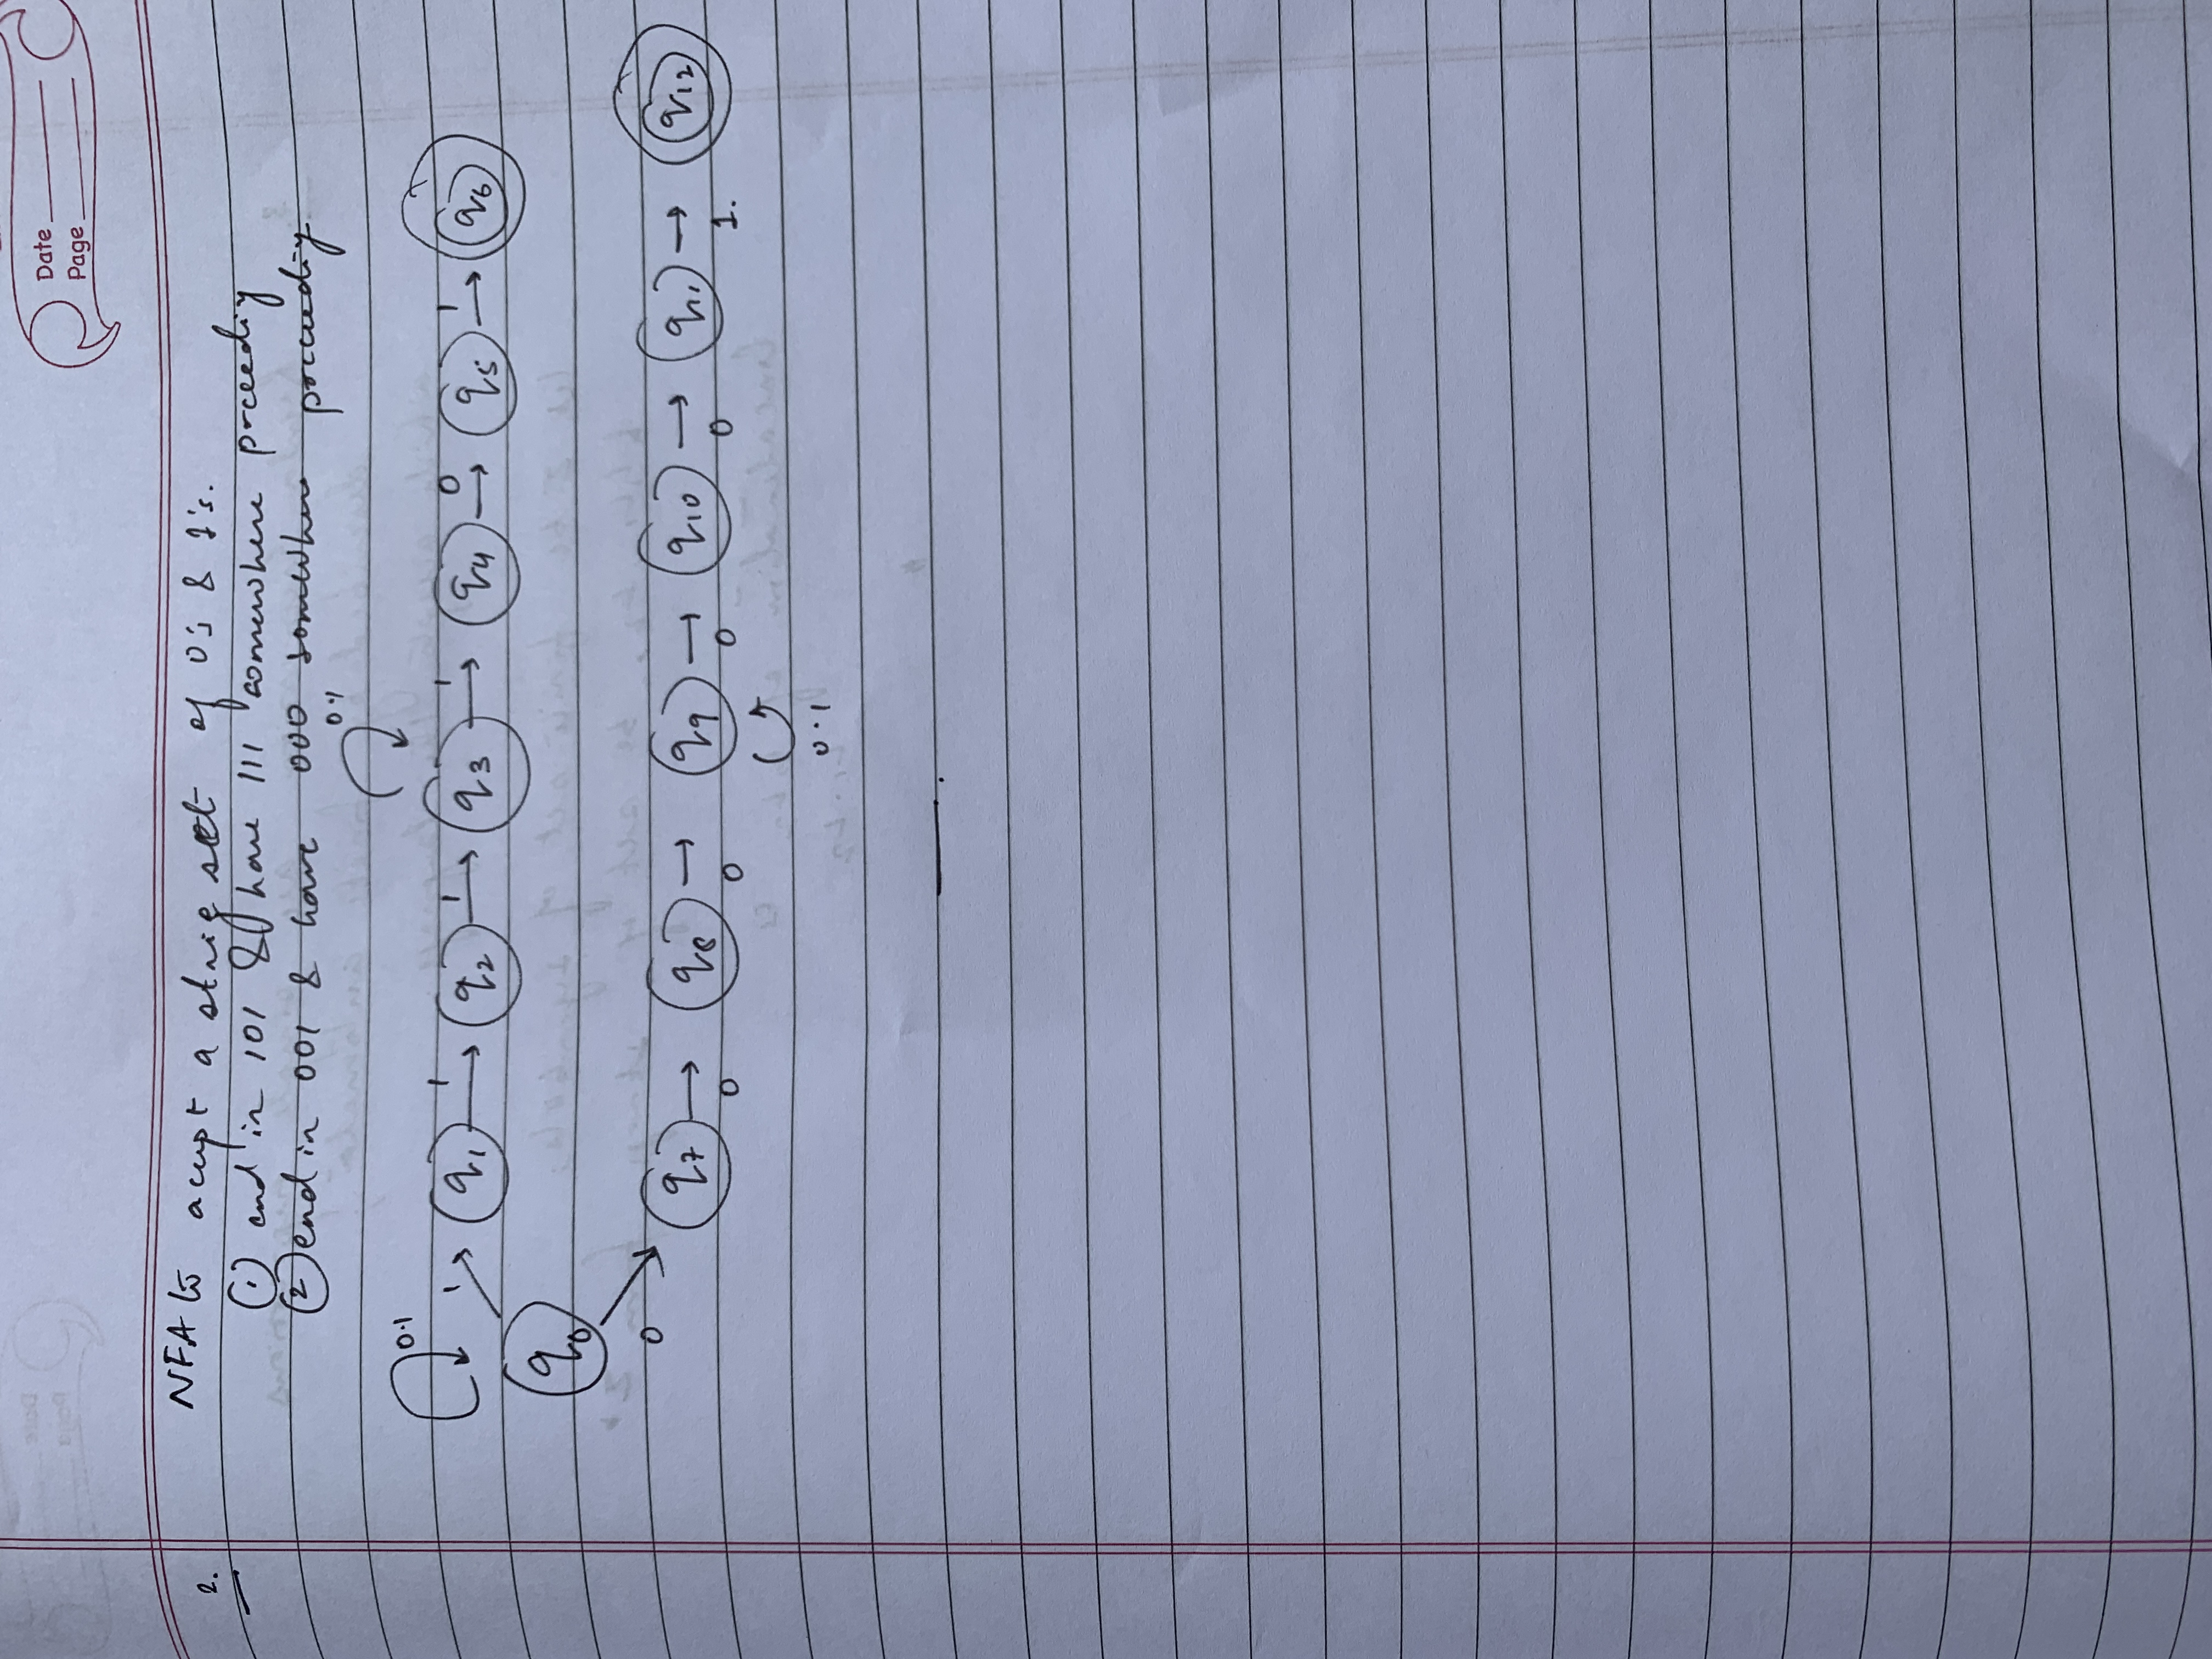 Date
Page
2.
NFA to accept a string set of 0's & 1's.
(1) end in 101 & have 111 somewhere preceediy
(2) end in 001 & have 000 somewhere preceediy
0.1
0.1
1 q1 1 q2 1 q3 1 q4 0 q5 1 q6
q0
0 q7 0 q8 0 q9 0 q10 0 q11 1. q12
0.1